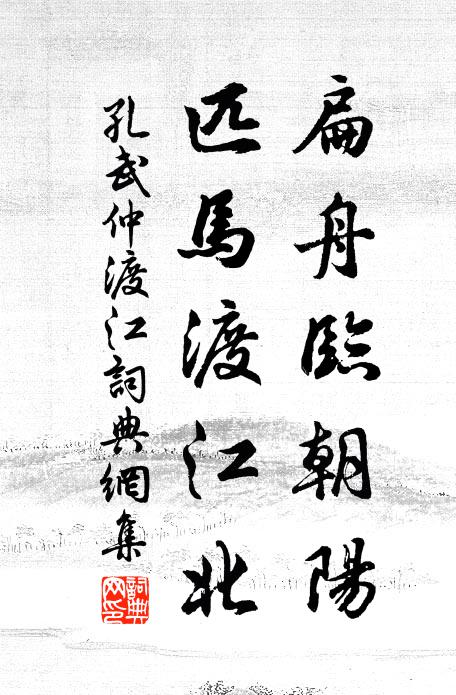 扁舟臨朝陽
匹馬渡江北
孔武仲渡江詞典網集
詞典
网印